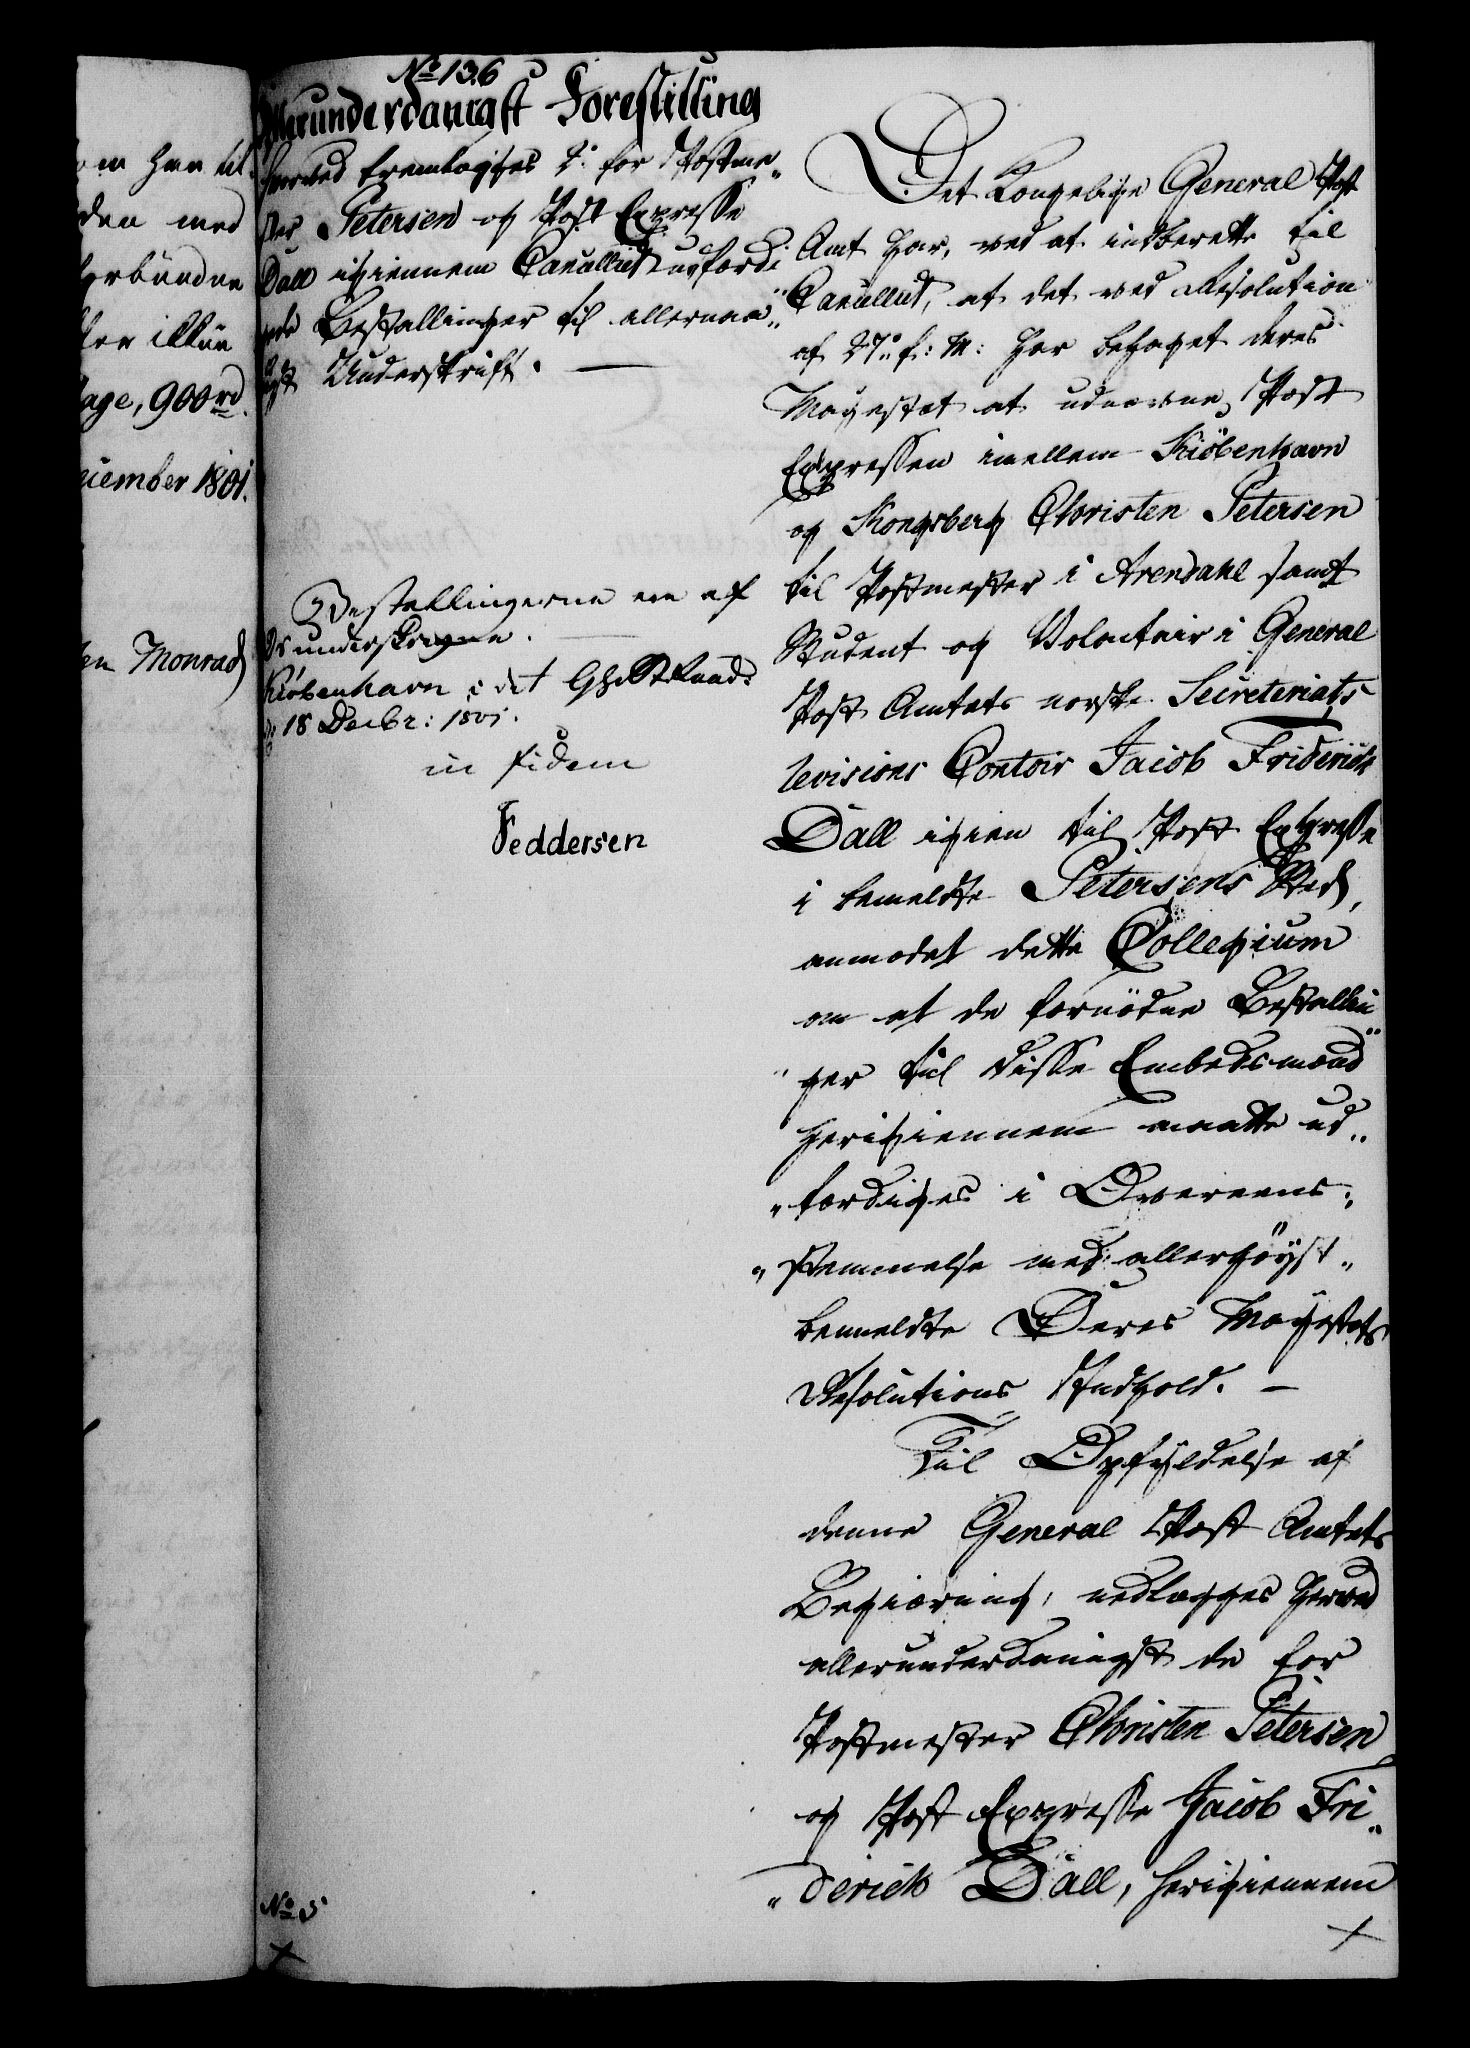 om han til
den med
forbundne
ller ikkun
lage, 900 rd.
ecember 1801.
en Monrad
No 136
Allerunderdanigst Forestilling
hvorved fremlægges 2de for Postme„
ster Petersen og Post Expresse
Dall igiennem Cancelliet udfærdi
gede Bestallinger til allernaa„
digst Underskrift. —
Bestallingerne ere af
Os underskrevne. —
Kiøbenhavn i det Gh: St. Raad:
d: 18 Decbr: 1801.
in fidem
Feddersen
No 5
Det Kongelige General Post
Amt har, ved at indberette til
Cancelliet, at det ved Resolution
af 27de f: M: har behaget Deres
Mayestæt at udnævne Post
Expressen imellem Kiöbenhavn
og Kongsberg Christen Petersen
til Postmester i Arendahl samt
Student og Volontair i General
Post Amtets norske Secreteriats
Revisions Contoir Jacob Friderich
Dall igien til Post Expresse
i bemeldte Petersens Sted,
anmodet dette Collegium
om at de fornödne Bestallin
„ger til disse Embedsmænd
herigiennem maatte ud„
„færdiges i Overeens„
„stemmelse med allerhöyst„
bemeldte Deres Mayestæts
Resolutions Indhold. —
Til Opfyldelse af
denne General Post Amtets
Begiæring, nedlægges herved
allerunderdanigst de for
Postmester Christen Petersen
og Post Expresse Jacob Fri„
„derich Dall, herigiennem